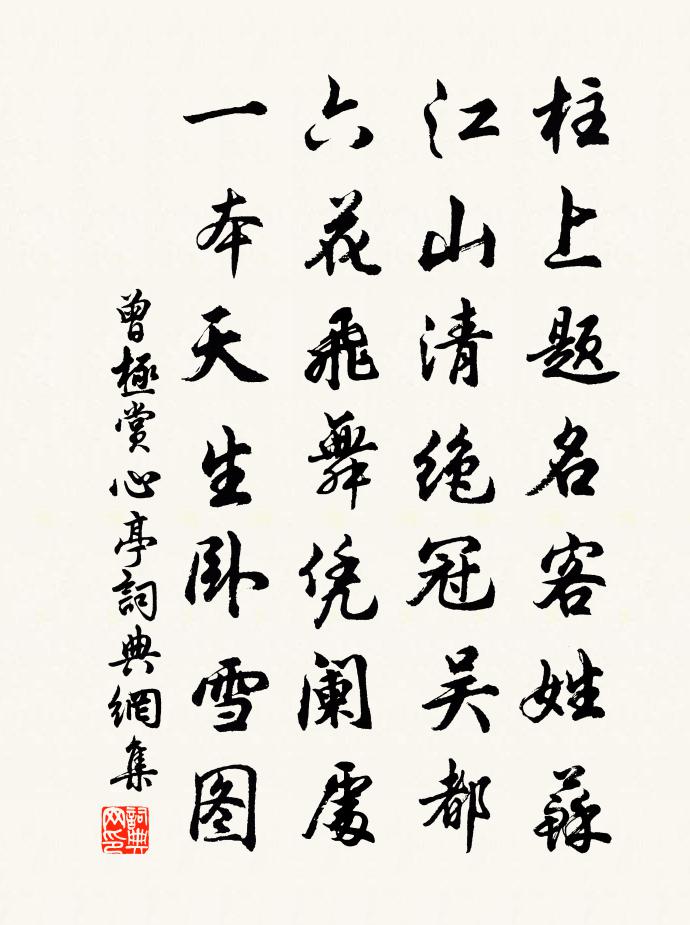 柱上题名客姓蘇
江山清绝冠吴都
六花飛舞凭阑處
一本天生卧雪图
曾極賞心亭詞典網集
詞典网印